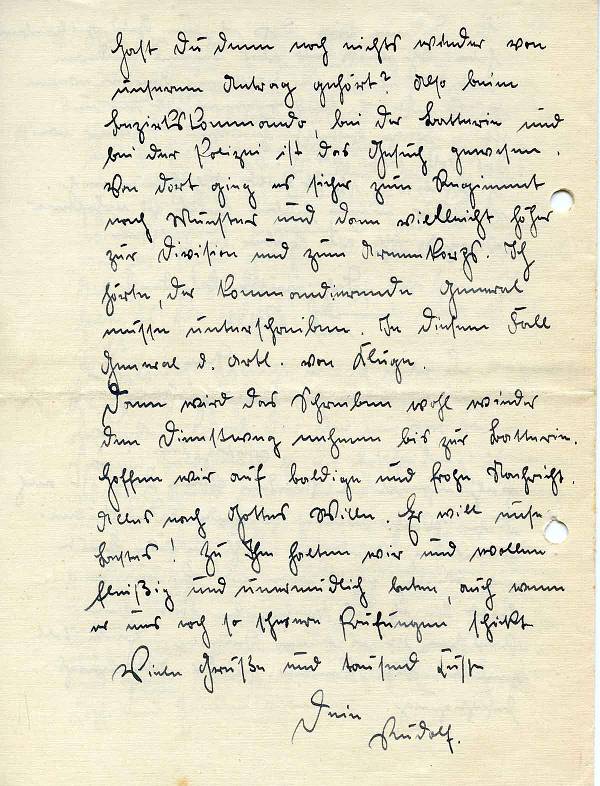 Hast Du denn noch nichts wieder von
unserem Antrag gehört? Also beim
Bezirkskommando, bei der Batterie und
bei der Polizei ist das Gesuch gewesen.
Von dort ging es sicher zum Regiment
nach Münster und dann vielleicht höher
zur Division und zum Armeekorps. Ich
hörte, der kommandierende General
müsse unterschreiben. In diesem Fall
General d. Artl. von Kluge.
Dann wird das Schreiben wohl wieder
den Dienstweg nehmen bis zur Batterie.
Hoffen wir auf baldige und frohe Nachricht.
Alles nach Gottes Wille. Er will unse
Bestes! Zu Ihm halten wir und wollen
fleißig und unermüdlich beten, auch wenn
er uns noch so schwere Prüfungen schickt
Viele Grüße und tausend Küsse
Dein
Rudolf.